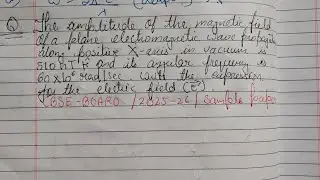 Q) The amplitude of the magnetic field
of a plane electromagnetic wave propagating
along positive X-axis in vacuum is
510 nT & and its angular frequency is
60×10⁶ rad/sec. write the expression
for the electric field (E⃗).
BSE-BOARD / 2025-26 / Sample Paper